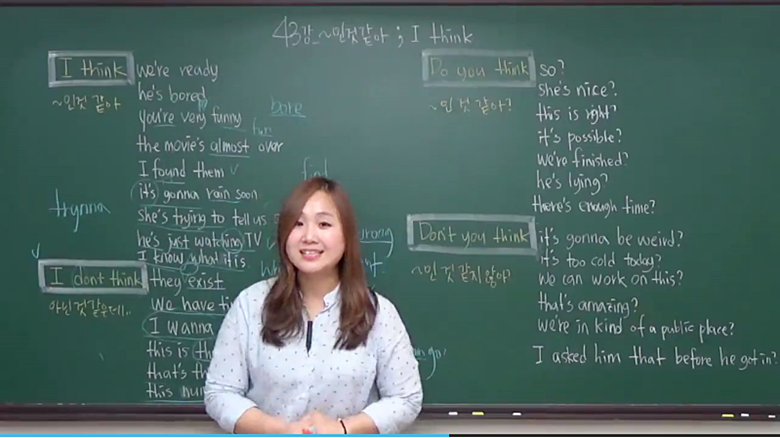 43강_~인것같아 ; I think
I think
~인것 같아
we're ready
he's bored
you're very funny
the movie's almost over
I found them
it's gonna rain soon
she's trying to tell us
he's just watching TV
I know what it is
bore
fun
find
trynna
I don't think
they exist
We have
I wanna
this is
that's
this
Do you think
~인 것 같아?
so?
she's nice?
this is right?
it's possible?
we're finished?
he's lying?
there's enough time?
Don't you think
~인 것 같지않아?
it's gonna be weird?
it's too cold today?
we can work on this?
that's amazing?
we're in kind of a public place?
I asked him that before he got in?